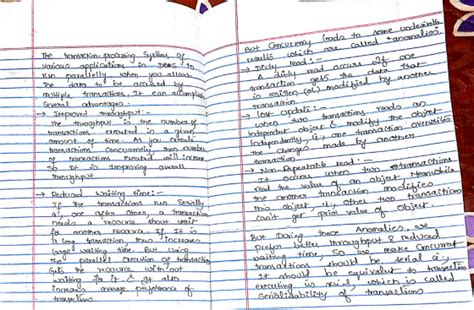 The transaction-processing systems of
various applications is needs to
run parallelly when you allows
the data to be accessed by
multiple transactions. It can accomplish
several advantages.
→ Improved throughput:-
The throughput is the number of
transactions executed in a given
amount of time. As you create
transactions concurrently then number
of transactions executed will increase
so it is improving overall
throughput
→ Reduced waiting time:-
If the transactions run serially
i.e., one after other, a transaction
needs a resource should wait
for another resource If it is
a long transaction, thus increases
large waiting time. But using
the parallel execution of transaction
Gets the resource without
waiting for it & it also
increases average preference of
transactions.
But Concurrency leads to some undesirable
results which are called "anomalies".
→ Dirty read:-
A dirty read occurs if one
transaction gets the data that
is written (or) modified by another
transaction
→ Lost Update:-
when two transactions reads an
independent object & modify the object
independently, i.e one transaction overwrites
the changes made by another
transaction.
→ Non-Repeatable read:-
It occurs when two transactions
Read the value of an object Meanwhile
the another transaction modifies
this object, if other two transactions
can't get prior value of object
But During these Anomalies, we
prefer better throughput & reduced
waiting time, So we make Concurrent
transactions should be serial i.e.,
It should be equivalent to transaction
executing in serial, which is called
serializability of transactions